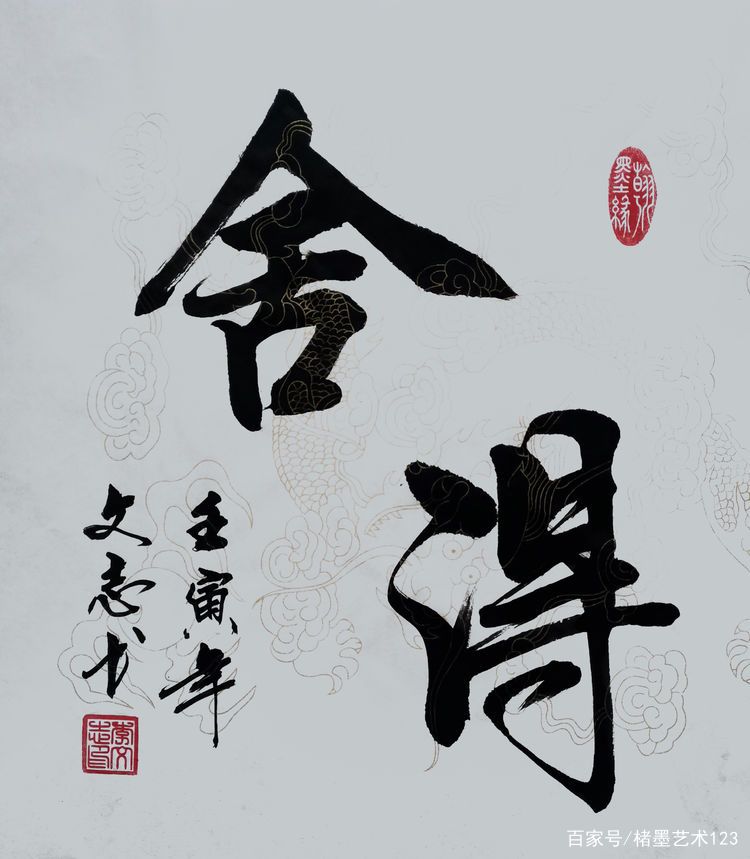 翰墨緣
舍得
壬寅年
文志书
百家号/楮墨艺术123